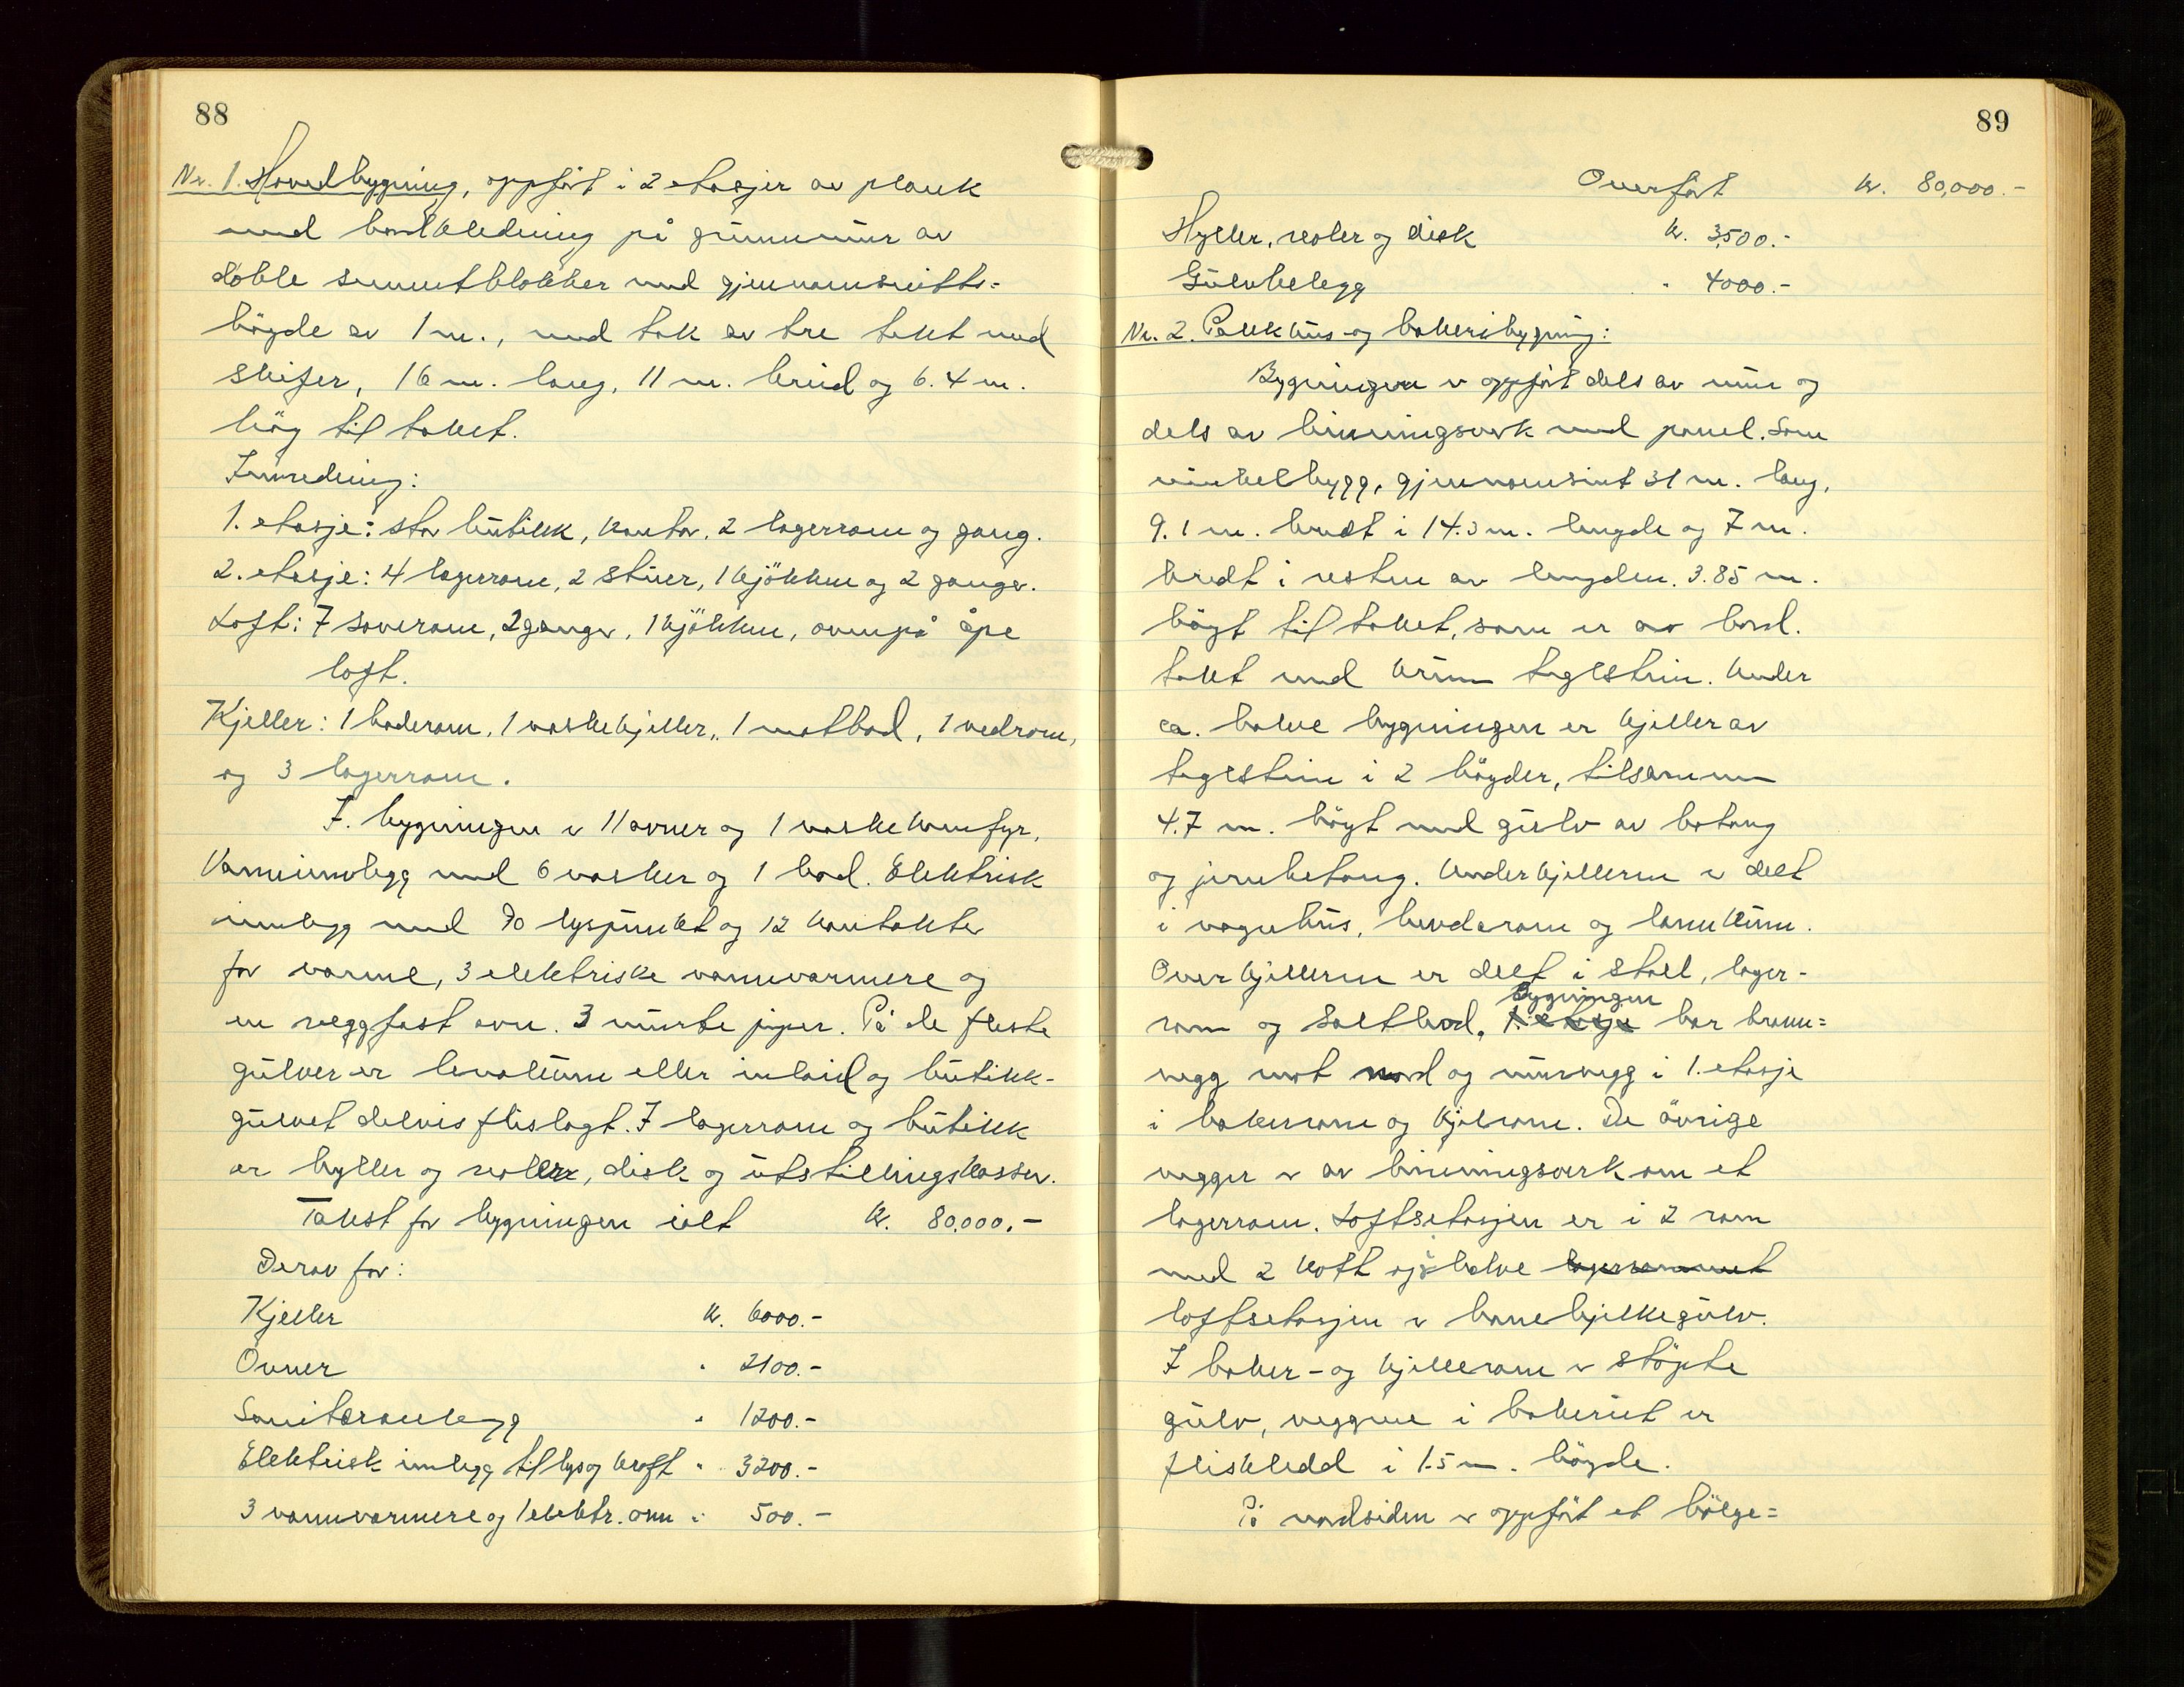 88
Nr. 1. Hovedbygning, oppført i 2 etasjer av plank
med bordkledning på grunnmur av
doble sementblokker med gjennomsnitts=
høyde av 1 m., med tak av tre tekt med
skifer, 16 m. lang, 11 m. breid og 6.4 m.
høg til taket.
Innredning:
1. etasje: stor butikk, kontor, 2 lagerrom og gang.
2. etasje: 4 lagerrom, 2 stuer, 1 kjøkken og 2 ganger.
Loft: 7 soverom, 2 ganger, 1 kjøkken, ovenpå åpe
loft.
Kjeller: 1 baderom, 1 vaskekjeller, 1 matbod, 1 vedrom,
og 3 lagerrom.
I bygningen er 11 ovner og 1 vaskekomfyr,
Vanninnlegg med 6 vasker og 1 bad. Elektrisk
innlegg med 70 lyspunkt og 12 kontakter
for varme, 3 elektriske vannvarmere og
en veggfast ovn. 3 murte piper. På de fleste
gulver er linoleum eller inlaid og butikk-
gulvet delvis flislagt. I lagerrom og butikk
er hyller og reoler, disk og utstillingskasser.
Takst for bygningen ialt kr. 80,000.-
Derav for:
Kjeller kr. 6000.-
Ovner " 2100.-
Sanitæranlegg " 1200.-
Elektrisk innlegg til lys og kraft " 3200.-
3 vannvarmere og 1 elektr. ovn " 500.-
89
Overført kr. 80,000.-
Hyller, reoler og disk kr. 3,500.-
Gulvbelegg " 4000.-
Nr. 2. Pakkhus- og bakeribygning:
Bygningen er oppført dels av mur og
dels av binningsverk med panel. Som
vinkelbygg, gjennomsnt 31 m. lang,
9.1 m. bredt i 14.3 m. lengde og 7 m.
bredt i resten av lengden. 3.85 m.
høgt til taket, som er av bord.
tekt med krum teglstein. Under
ca. halve bygningen er kjeller av
teglstein i 2 høgder, tilsammen
4.7 m. høgt med gulv av betong
og jernbetong. Underkjelleren er delt
i vognhus, og landkum.
Overkjelleren er delt i stall, lager-
rom og saltbod. 1. etasje Bygningen har brann=
vegg mot nord og murvegg i 1. etasje
i bakerrom og kjølrom. De øvrige
vegger er av binningsverk om et
lagerrom. Loftsetasjen er i 2 rom
med 2 kott og halve lagerrommet
loftsetasjen er bare bjelkegulv.
I baker- og kjellerom er støpte
gulv, veggene i bakeriet er
fliskledd i 1.5 m. høgde.
På nordsiden er oppført et bølge=